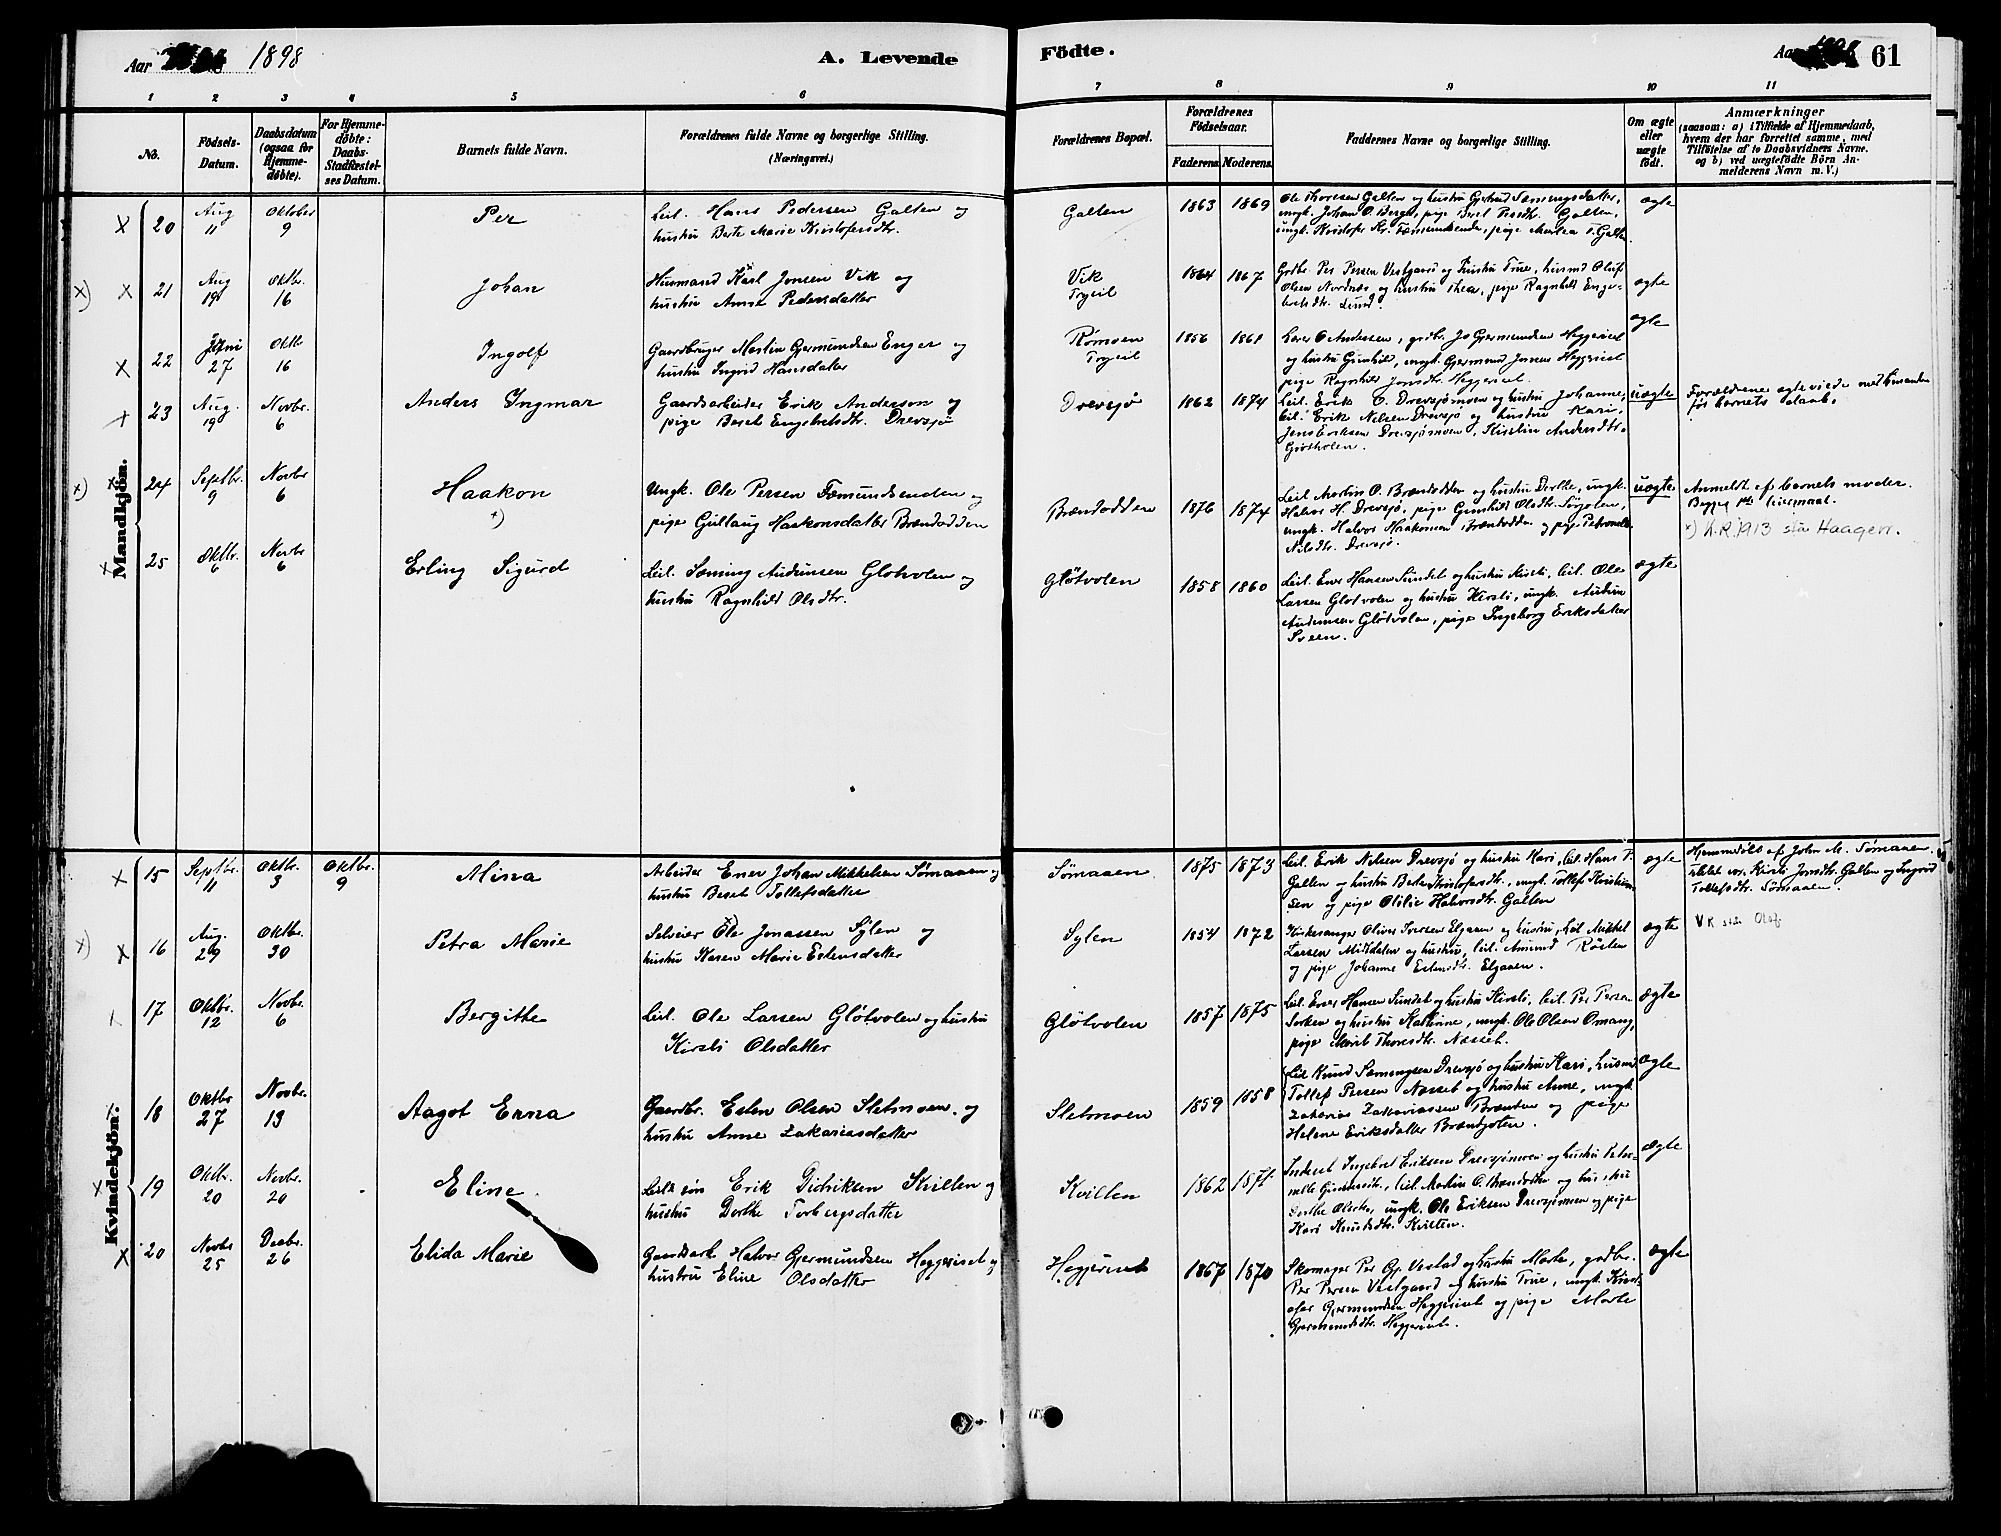 Aar 1898
A. Levende
Födte.
Aar 1898
61
1 2 3 4 5 6 7 8 9 10 11
No.
Födsels-
Datum.
Daabsdatum
(ogsaa for
Hjemme-
döbte).
For Hjemme-
döbte:
Daabs-
Stadfæstel-
ses Datum.
Barnets fulde Navn.
Forældrenes fulde Navne og borgerlige Stilling.
(Næringsvei.)
Forældrenes Bopæl.
Forældrenes
Födselsaar.
Faderens. Moderens.
Faddernes Navne og borgerlige Stilling.
Om ægte
eller
uægte
födt.
Anmærkninger
(saasom: a) i Tilfælde af Hjemmedaab,
hvem der har forrettet samme, med
Tilföielse af to Daabsvidners Navne,
og b) ved uægtefödte Börn An-
melderens Navn m. V.)
Mandkjön.
20 Aug 11 Oktober 9 Per
Leil. Hans Pedersen Galten og
hustru Berte Marie Kristofersdtr.
Galten 1863 1869
Ole Thoresen Galten og hustru Gjertrud Sæmingsdatter,
ungk. Johan O. Berge, pige Beret Persdtr. Galten,
ungk. Kristofer Kr. Fæmundsende, pige Martea T. Galten.
ægte
x) 21 Aug 19 Oktbr. 16 Johan
Husmand Karl Jonsen Vik og
hustru Anne Pedersdatter
Vik
Trysil
1864 1867
Grdbr. Per Persen Vestgaard og hustru Trine, husmd Oluf
Olsen Nordnæs og hustru Thea, pige Ragnhild Enge-
bretsdtr. Lund.
ægte
22 Juni 27 Oktb 16 Ingolf
Gaardbruger Martin Gjermundsen Enger og
hustru Ingrid Hansdatter
Rømoen
Trysil
1856 1861
Lærer O Andersen, grdbr. Jo Gjermundsen Heggeriset
og hustru Gunhild, ungk. Gjermund Jonsen Heggeriset
pige Ragnhild Jonsdtr. Heggeriset.
ægte
23 Aug. 19 Novbr. 6 Anders Ingmar
Gaardsarbeider Erik Anderson og
pige Beret Engebretsdtr. Drevsjø
Drevsjø 1862 1874
Leil. Erik O. Drevsjømoen og hustru Johanne,
leil. Erik Nelsen Drevsjø og hustru Kari,
Jens Eriksen Drevsjømoen, Kirstin Andersdtr.
uægte
Forældrene ægteviede med hinanden
før barnets daab.
x) 24 Septbr. 9 Novbr 6 Haakon
x)
Ungk. Ole Persen Fæmundsenden og
pige Gullaug Haakonsdatter Brændodden
Brændodden 1876 1874
Leil Martin O. Brændodden og hustru Dorthe, ungk.
Halvor H. Drevsjø, pige Gunhild Olsdtr. Sögolen,
ungk. Halvor Haakonsen Brændodden og pige Petronelle
Nilsdtr. Drevsjø.
uægte
Anmeldt af barnets moder.
Begges 1ste leiermaal.
x) A.R. 1913 står Haagen.
25 Oktbr. 6 Novbr 6 Erling Sigurd
Leil. Sæming Audunsen Glötvolen og
hustru Ragnhild Olsdtr.
Glötvolen 1858 1860
Leil. Ener Hansen Sundet og hustru Kirsti, leil. Ole
Larsen Glötvolen og hustru Kirsti, ungk. Audun
Audunsen Glötvolen, pige Ingeborg Eriksdatter
Sveen.
ægte
Kvindekjön.
15 Septbr. 11 Oktbr. 3 Oktbr. 9 Alina
Arbeider Ener Johan Mikkelsen Sømaaen og
hustru Beret Tollefsdatter
Sømaaen 1875 1873
Leil. Erik Nelsen Drevsjø og hustru Kari, leil. Hans P.
Galten og hustru Berte Kristofersdtr., ungk. Tollef Kristian-
sen og pige Otilie Halvorsdtr. Galten
ægte
Hjemmedøbt af John M. Sømaaen.
tilstede var Kirsti Jonsdtr. Galten og Ingrid
Tollefsdtr. Sømaaen.
x) 16 Aug. 29 Oktbr. 30 Petra Marie
x)
Selveier Ole Jonassen Sylen og
hustru Karen Marie Estensdatter
Sylen 1854 1872
Kirkesanger Oliver Iversen Elgaaen og hustru, leil Mikkel
Larsen Mikkdalen og hustru, leil. Amund Røsten
og pige Johanne Estensdtr. Elgaaen.
ægte
VK står Olof
17 Oktbr. 12 Novbr. 6 Bergitte
Leil. Ole Larsen Glötvolen og hustru
Kirsti Olsdatter
Glötvolen 1857 1875
Leil. Ener Hansen Sundet og hustru Kirsti, leil. Per Persen
Sorken og hustru Kathrine, ungk. Ole Olsen Omang,
pige Marit Thoresdtr. Næsset.
ægte
18 Oktbr 27 Novbr. 13 Aagot Enna
Gaardbr. Esten Olsen Sletmoen. og
hustru Anne Zakariasdatter
Sletmoen 1859 1858
Leil Knud Sæmingsen Drevsjø og hustru Kari, husmd
Tollef Persen Næsset og hustru Anne, ungk.
Zakarias Zakariassen Brænden og pige
Helene Eriksdatter
ægte
19 Oktbr. 20 Novbr. 20 Eline.
Leilk søn Erik Didriksen Kvilten og
hustru Dorthe Torbergsdatter
Kvilten 1862 1871
Inderst Ingebret Eriksen Drevsjømoen og hustru Petro-
nelle leil. Martin O. Brændodden og hustru
Dorthe Olsdtr, ungk. Ole Eriksen Drevsjømoen og pige
Kari Knudsdtr. Kvilten.
ægte
20 Novbr 25 Decbr. 26 Elida Marie
Gaardsarb Halvor Gjermundsen Heggeriset og
hustru Eline Olsdatter
Heggeriset 1867 1870
Skomager Per Gj. Vestad og hustru Marte, grdbr.
Per Persen Vestgaard og hustru Trine, ungk. Krist-
ofer Gjermundsen Heggeriset og pige Marte
Gjermundsdtr. Heggeriset.
ægte